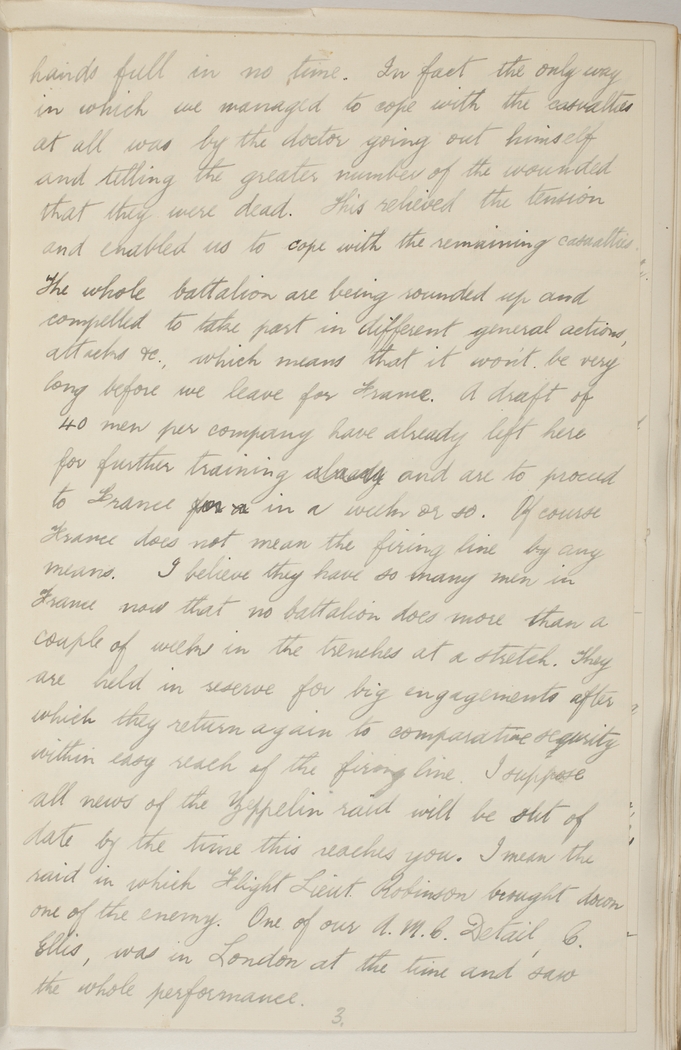 hands full in no time. In fact the only way
in which we managed to cope with the casualties
at all was by the doctor going out himself
and telling the greater number of the wounded
that they were dead. This relieved the tension
and enabled us to cope with the remaining casualties.
The whole battalion are being rounded up and
compelled to take part in different general actions,
attacks &c., which means that it won't be very
long before we leave for France. A draft of
40 men per company have already left here
for further training already and are to proceed
to France for a in a week or so. Of course
France does not mean the firing line by any
means. I believe they have so many men in
France now that no battalion does more than a
couple of weeks in the trenches at a stretch. They
are held in reserve for big engagements after
which they return again to comparative security
within easy reach of the firing line. I suppose
all news of the Zeppelin raid will be out of
date by the time this reaches you. I mean the
raid in which Flight Lieut. Robinson brought down
one of the enemy. One of our A.M.C. Detail, C.
Ellis, was in London at the time and saw
the whole performance.
3.